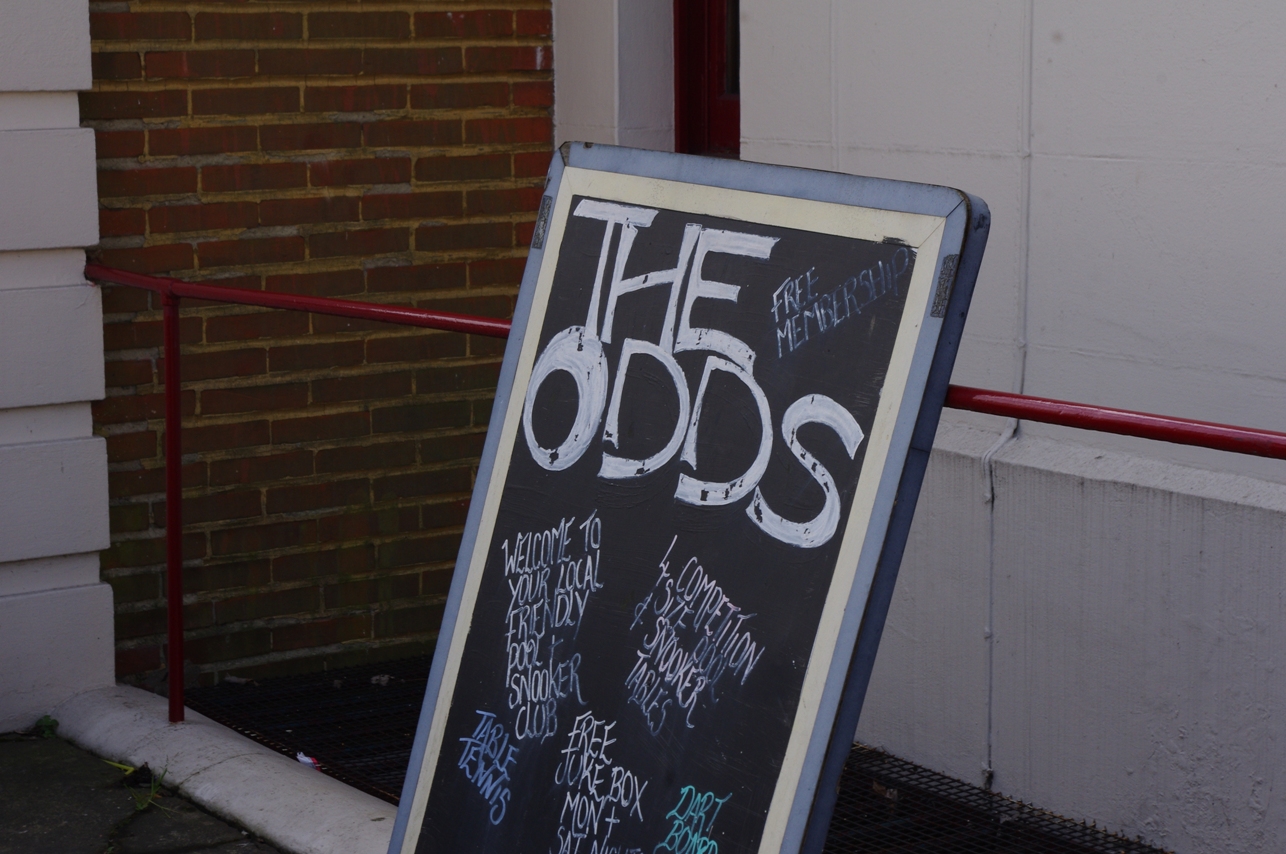 THE
ODDS
FREE
MEMBERSHIP
WELCOME TO
YOUR LOCAL
FRIENDLY
POOL +
SNOOKER
CLUB
4 COMPETITION
SIZE POOL
SNOOKER
TABLES
TABLE
TENNIS
FREE
JUKE BOX
MON +
SAT NIGHT
DART
BOARD